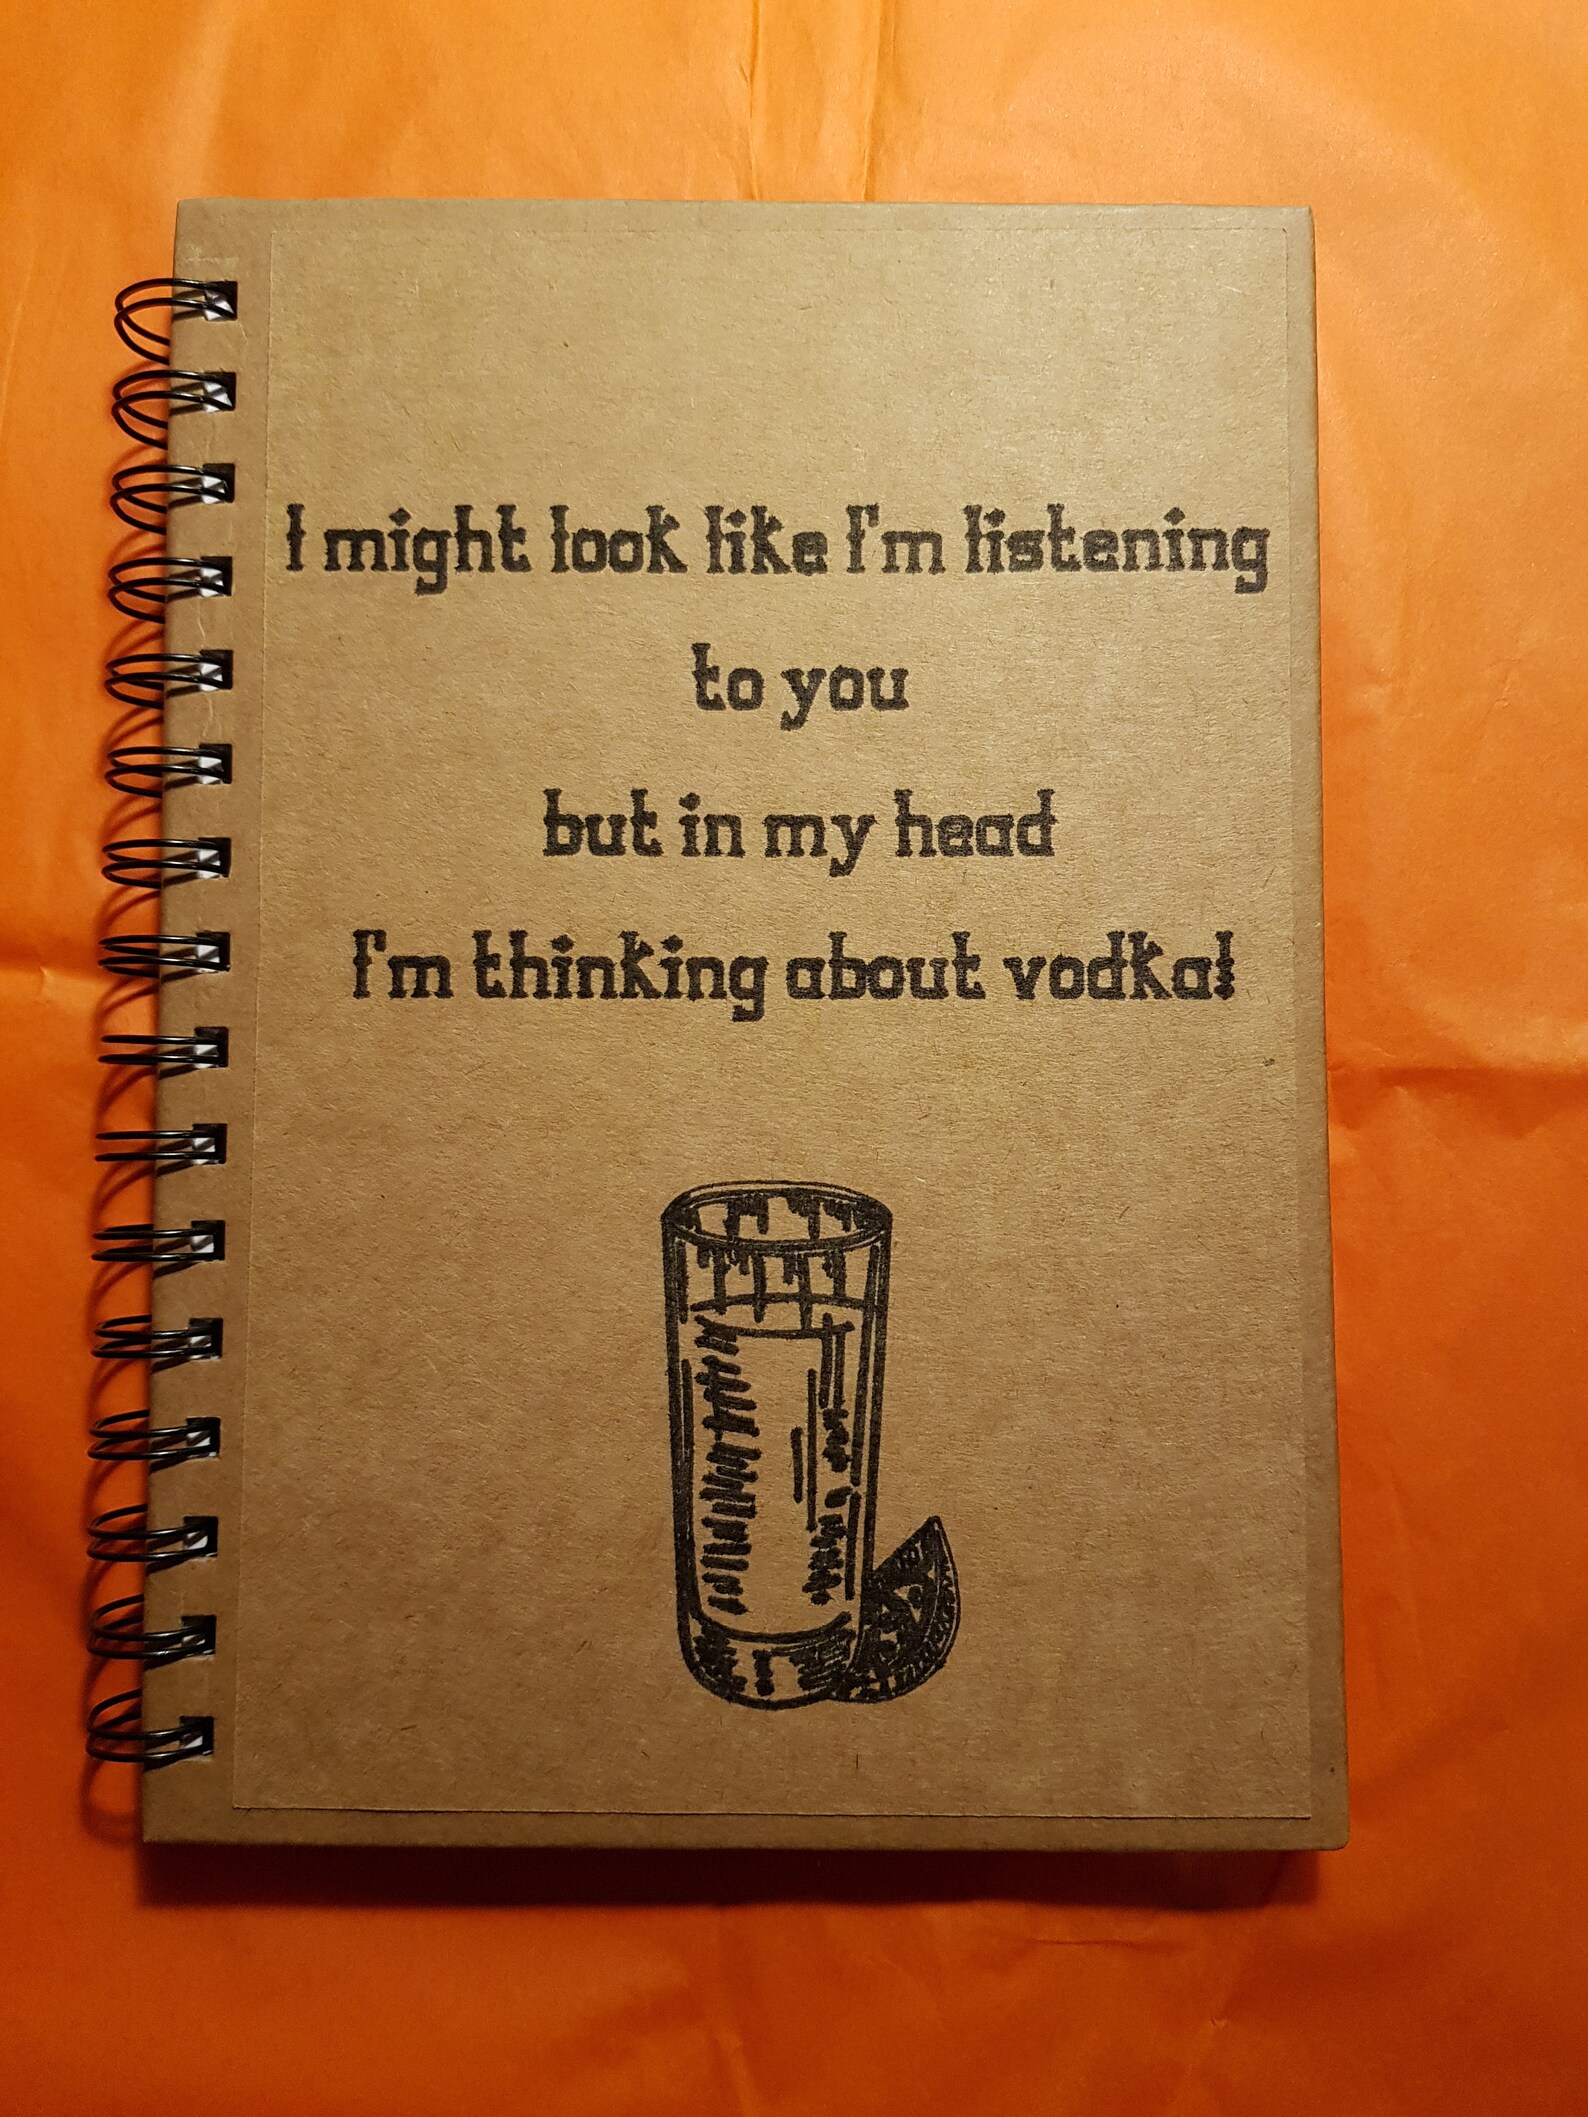 I might look like I'm listening
to you
but in my head
I'm thinking about vodka!